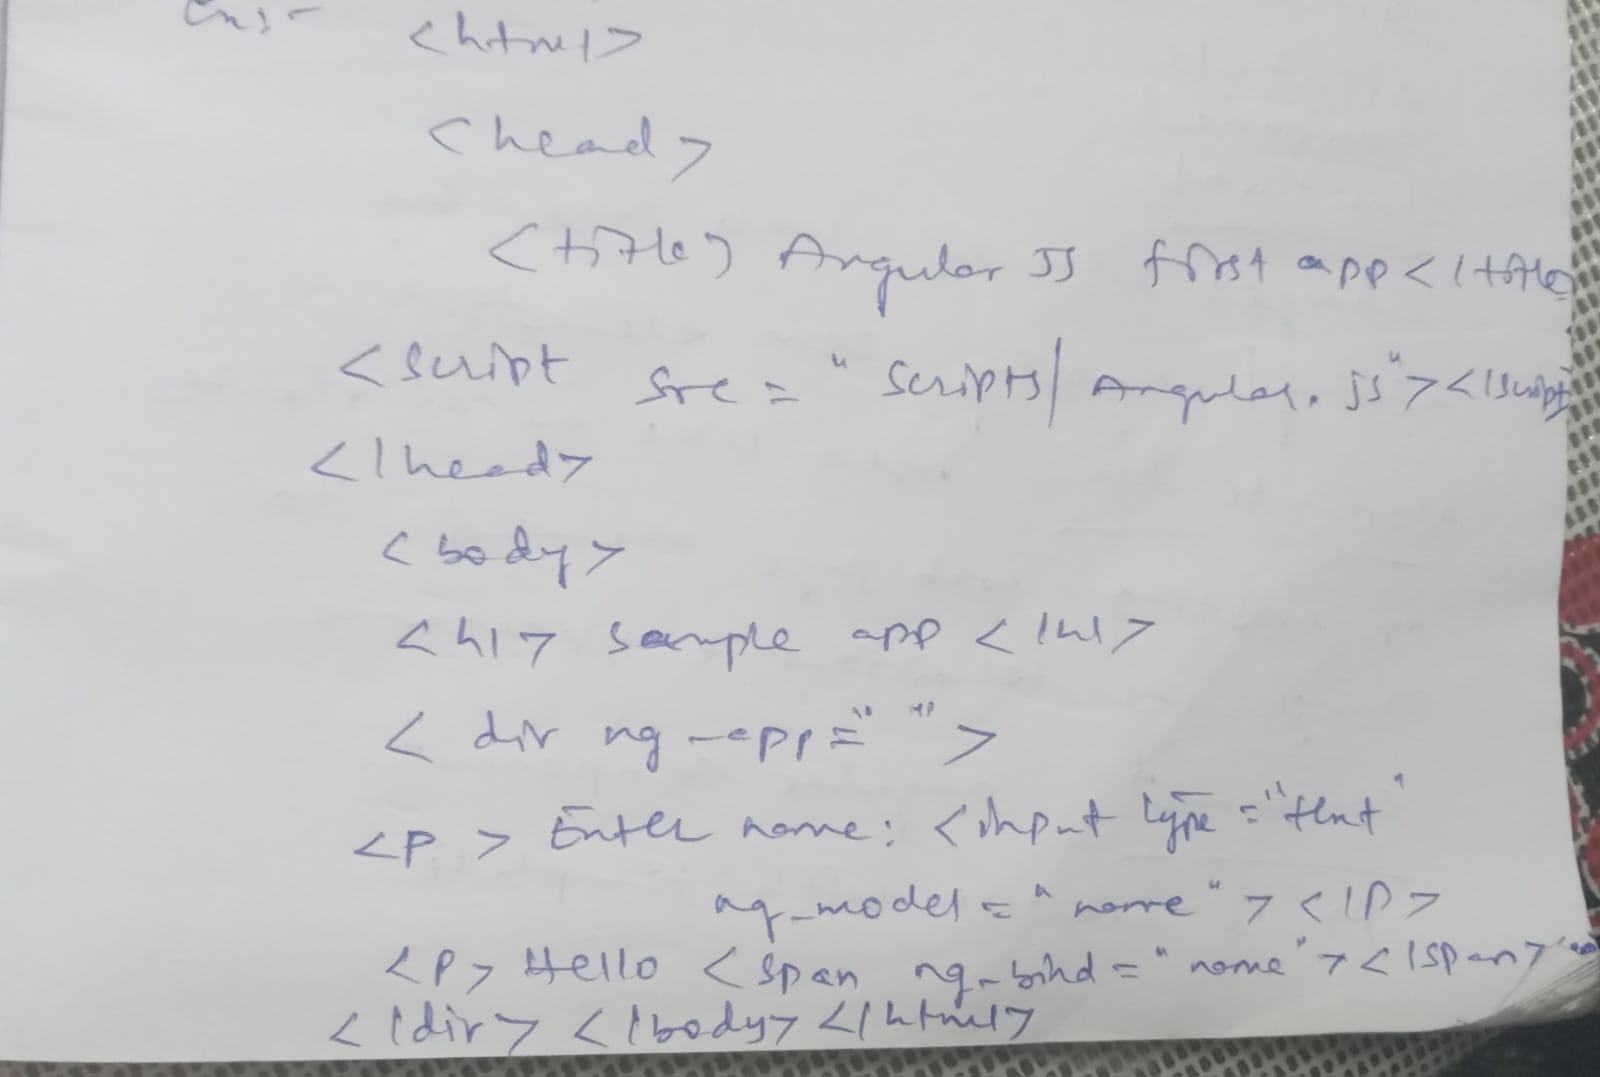 Ex:- <html>
<head>
<title> Angular JS first app </title
<script src = "Scripts/Angular.js"></script
</head>
<body>
<h1> Sample app </h1>
<dir ng-app=" ">
<p> Enter name: <input type="text"
ng-model = "name"> </p>
<p> Hello <span ng-bind="name"></span>
</dir> </body> </html>